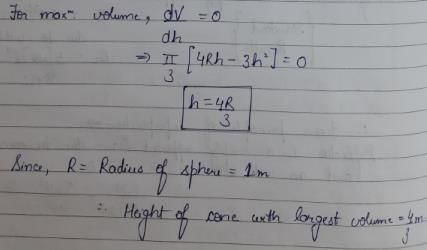 For maxᵐ volume, dV/dh = 0
⇒ π/3 [4Rh - 3h²] = 0
h = 4R/3
Since, R = Radius of sphere = 1m
∴ Height of cone with largest volume = 4/3 m